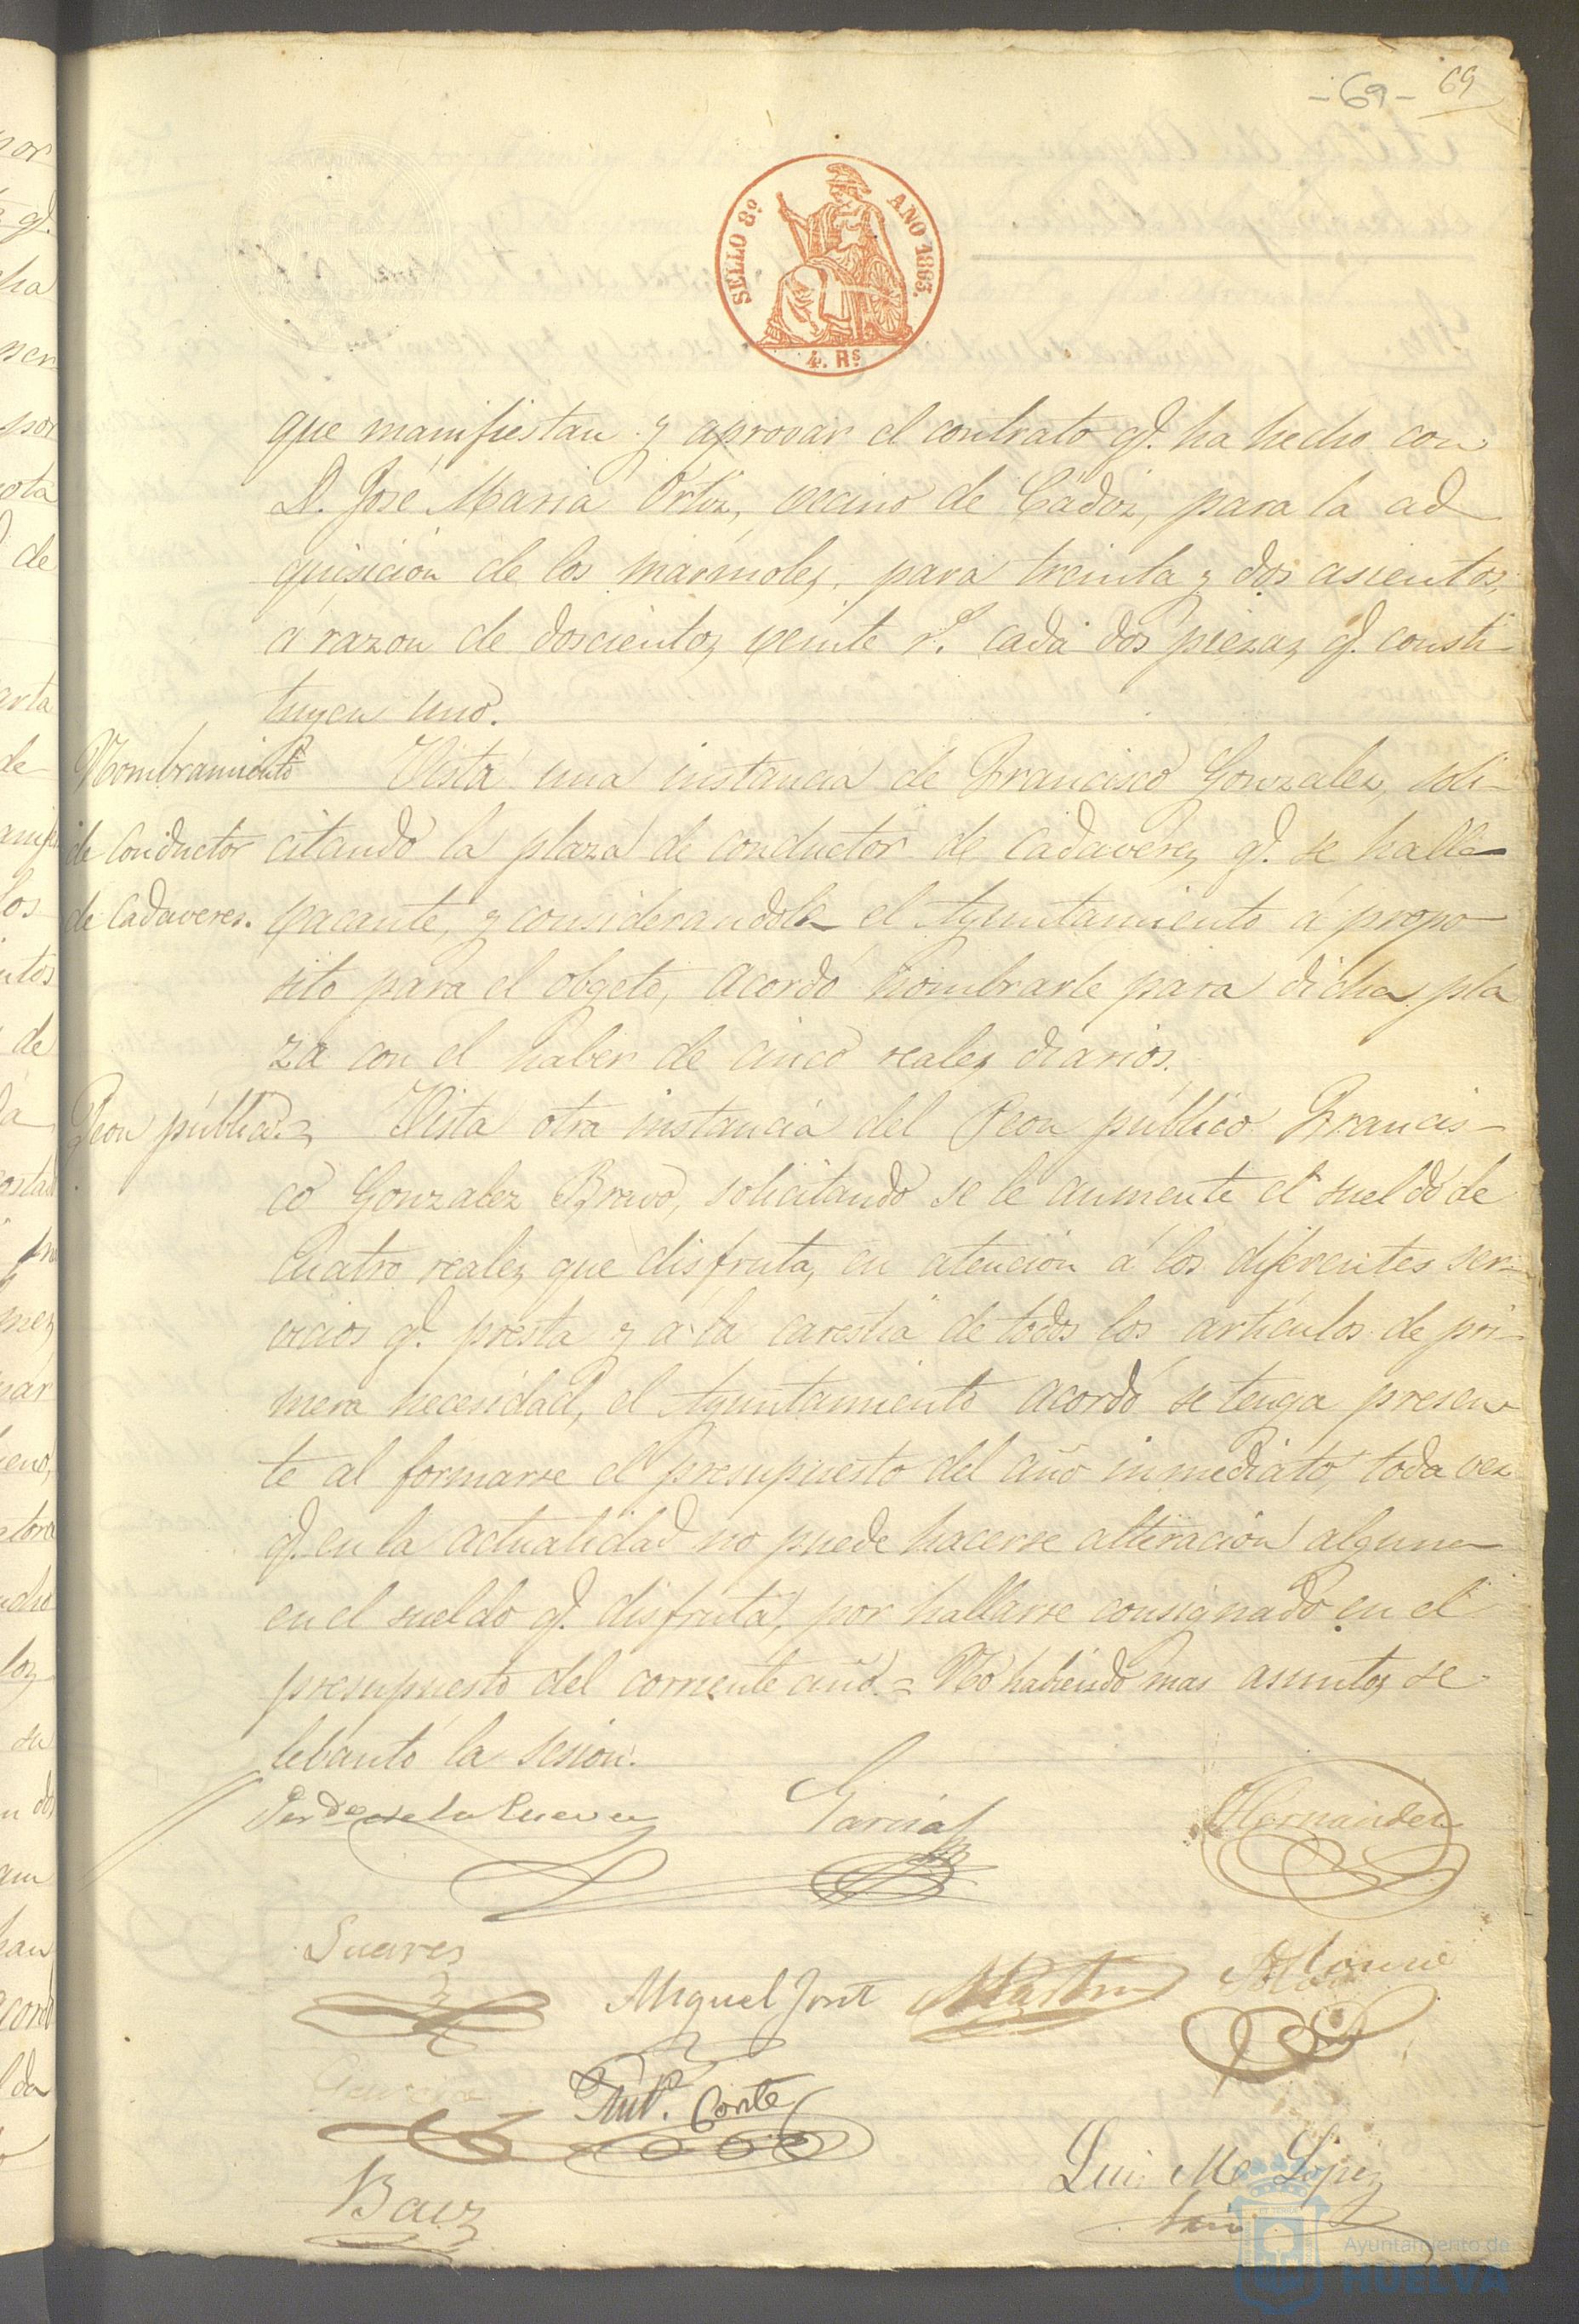 -69- 69
SELLO 8º AÑO 1865.
4. Rs
que manifiestan y aprovar el contrato q.e ha hecho con
D. José Maria Ortiz, vecino de Cádiz, para la ad
quisicion de los marmoles, para treinta y dos asientos,
á razon de doscientos veinte r.s cada dos piezas q.e consti-
tuyen uno.
Nombramiento
de Conductor
de Cadaveres.
Vista una instancia de Francisco Gonzalez, soli-
citando la plaza de conductor de cadaveres q.e se halla
vacante, y considerandole el Ayuntamiento á propo-
sito para el obgeto, acordó nombrarle para dicha pla
za con el haber de cinco reales diarios.
Peon público.=
Vista otra instancia del Peon público Francis-
co Gonzalez Bravo, solicitando se le aumente el sueldo de
cuatro reales que disfruta, en atencion á los diferentes ser-
vicios q.e presta y á la carestía de todos los artículos de pri-
mera necesidad, el Ayuntamiento acordó se tenga presen-
te al formarse el presupuesto del año inmediato, toda vez
q.e en la actualidad no puede hacerse alteracion alguna
en el sueldo q.e disfruta, por hallarse consignado en el
presupuesto del corriente año.= No habiendo mas asuntos se
lebantó la sesion.
de la Cueva
Garcia
Hernandez
Suarez
Miguel Jont
Martin
Ant.º Conte
Baez
Luis M.ª Lopez
Srio
Ayuntamiento de
HUELVA